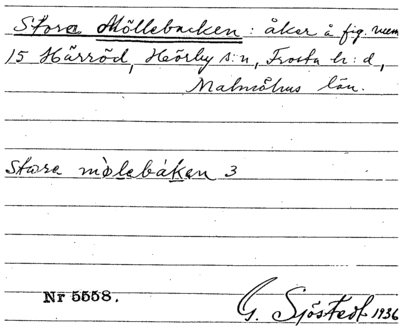 Stora Möllebacken: åker å fig. num
15 Härröd, Hörby s:n, Frosta h:d,
Malmöhus län.
Stora mòlebáken 3
Nr 5558.
G. Sjöstedt 1936